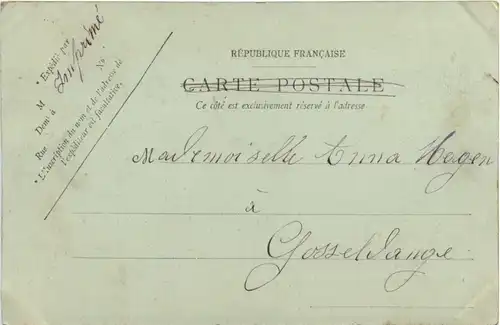 Expédié par
Imprimé
M
Demt à
Rue
No
L'inscription du nom et de l'adresse de
l'expéditeur est facultative.
RÉPUBLIQUE FRANÇAISE
CARTE POSTALE
Ce côté est exclusivement réservé à l'adresse
Mademoiselle Anna Hagen
à
Gosseldange